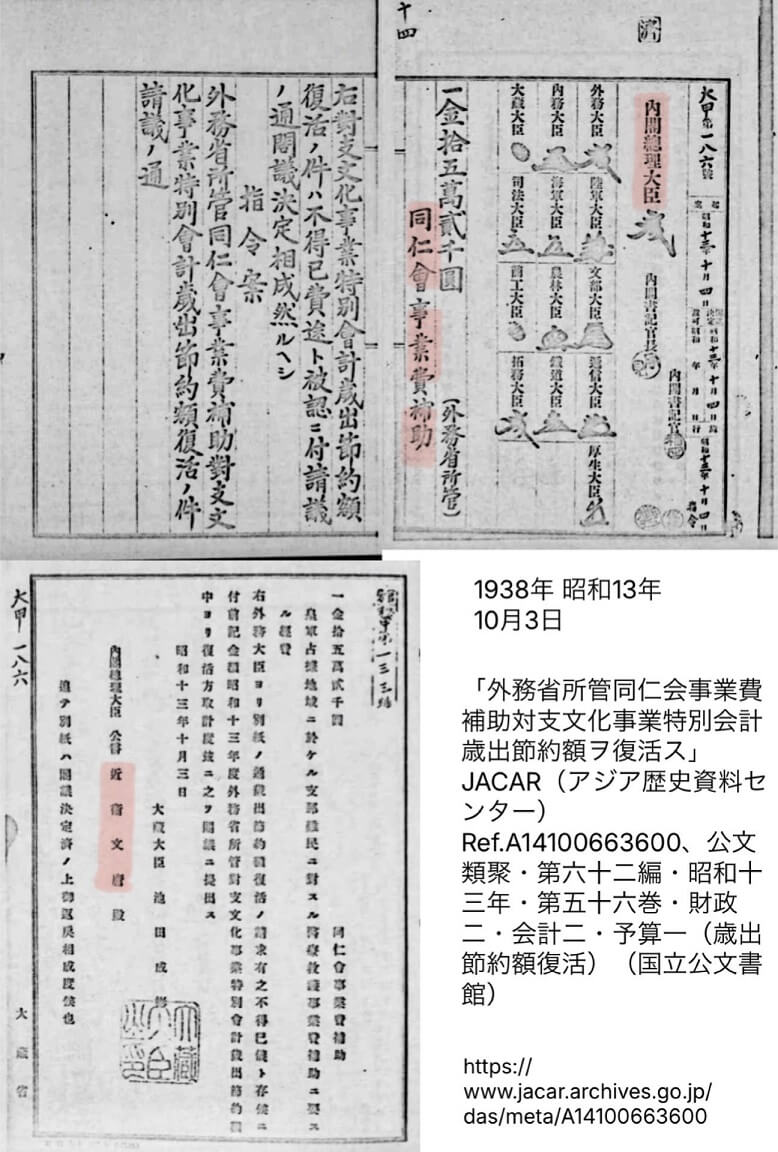 十四
大甲第一八六號
昭和十三年十月四日
內閣總理大臣
內閣書記官長
內閣書記官
外務大臣
陸軍大臣
文部大臣
遞信大臣
厚生大臣
內務大臣
海軍大臣
農林大臣
鐵道大臣
大藏大臣
司法大臣
商工大臣
拓務大臣
一金拾五萬貳千圓
同仁會事業費補助
(外務省所管)
右對支文化事業特別會計歲出節約額
復活ノ件ハ不得已費途ト被認ニ付請議
ノ通閣議決定相成然ルヘシ
指令案
外務省所管同仁會事業費補助對支文
化事業特別會計歲出節約額復活ノ件
請議ノ通
大甲一八六
一金拾五萬貳千圓
同仁會事業費補助
皇軍占據地域ニ於ケル支那難民ニ對スル醫療救護事業費補助ニ要ス
ル經費
右外務大臣ヨリ別紙ノ通歲出節約額復活ノ請求有之不得已儀ト存候ニ
付前記金額昭和十三年度外務省所管對支文化事業特別會計歲出節約額
中ヨリ復活方取計度玆ニ之ヲ閣議ニ提出ス
昭和十三年十月三日
大藏大臣 池田成彬
內閣總理大臣 公爵 近衞文麿殿
追テ別紙ハ閣議決定濟ノ上御返戾相成度候也
大藏省
1938年 昭和13年
10月3日
「外務省所管同仁会事業費
補助対支文化事業特別会計
歳出節約額ヲ復活ス」
JACAR（アジア歴史資料セ
ンター）
Ref.A14100663600、公文
類聚・第六十二編・昭和十
三年・第五十六巻・財政
二・会計二・予算一（歳出
節約額復活）（国立公文書
館）
https://
www.jacar.archives.go.jp/
das/meta/A14100663600